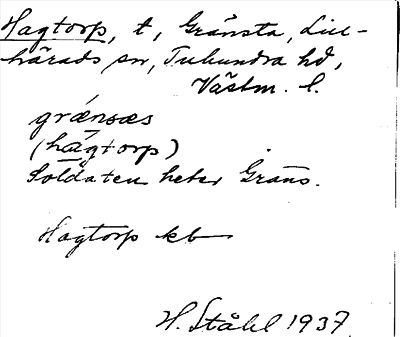 Hagtorp, t, Gränsta, Lill-
härads sn, Tuhundra hd,
Västm. l.
grænsæs
(hāgtorp)
Soldaten heter Gräns.
Hagtorp kb
H. Ståhl 1937